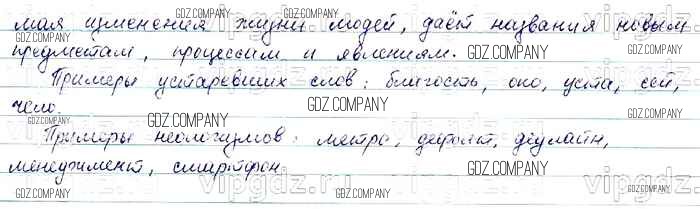 мая изменения жизни людей, даёт названия новым
предметам, процессам и явлениям.
Примеры устаревших слов: благость, око, уста, сей,
чело.
Примеры неологизмов: метро, дефолт, дедлайн,
менеджмент, смартфон.
GDZ.COMPANY
GDZ.COMPANY
GDZ.COMPANY
GDZ.COMPANY
GDZ.COMPANY
GDZ.COMPANY
GDZ.COMPANY
GDZ.COMPANY
GDZ.COMPANY
GDZ.COMPANY
GDZ.COMPANY
vipgdz.ru
vipgdz.ru
vipgdz.ru